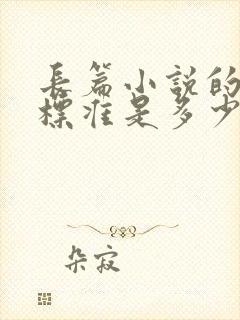 長篇小說的
標准是多少
朵寂